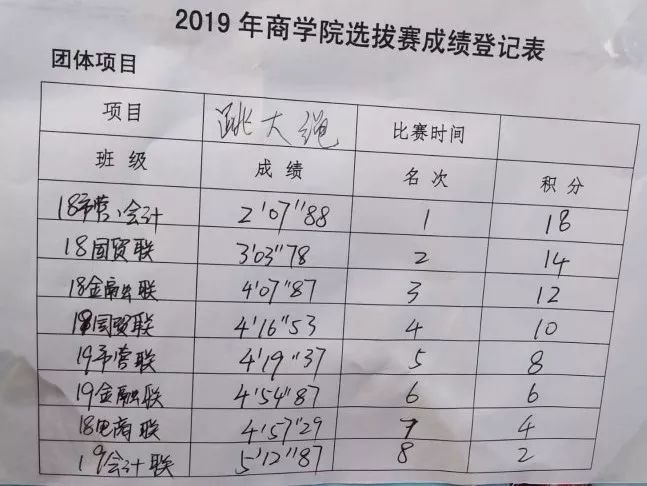 2019年商学院选拔赛成绩登记表
团体项目
项目 跳大绳 比赛时间
班级 成绩 名次 积分
18市营、会计 2'07"88 1 18
18国贸联 3'03"78 2 14
18金融联 4'07"87 3 12
19国贸联 4'16"53 4 10
19市营联 4'19"37 5 8
19金融联 4'54"87 6 6
18电商联 4'57"29 7 4
19会计联 5'12"87 8 2